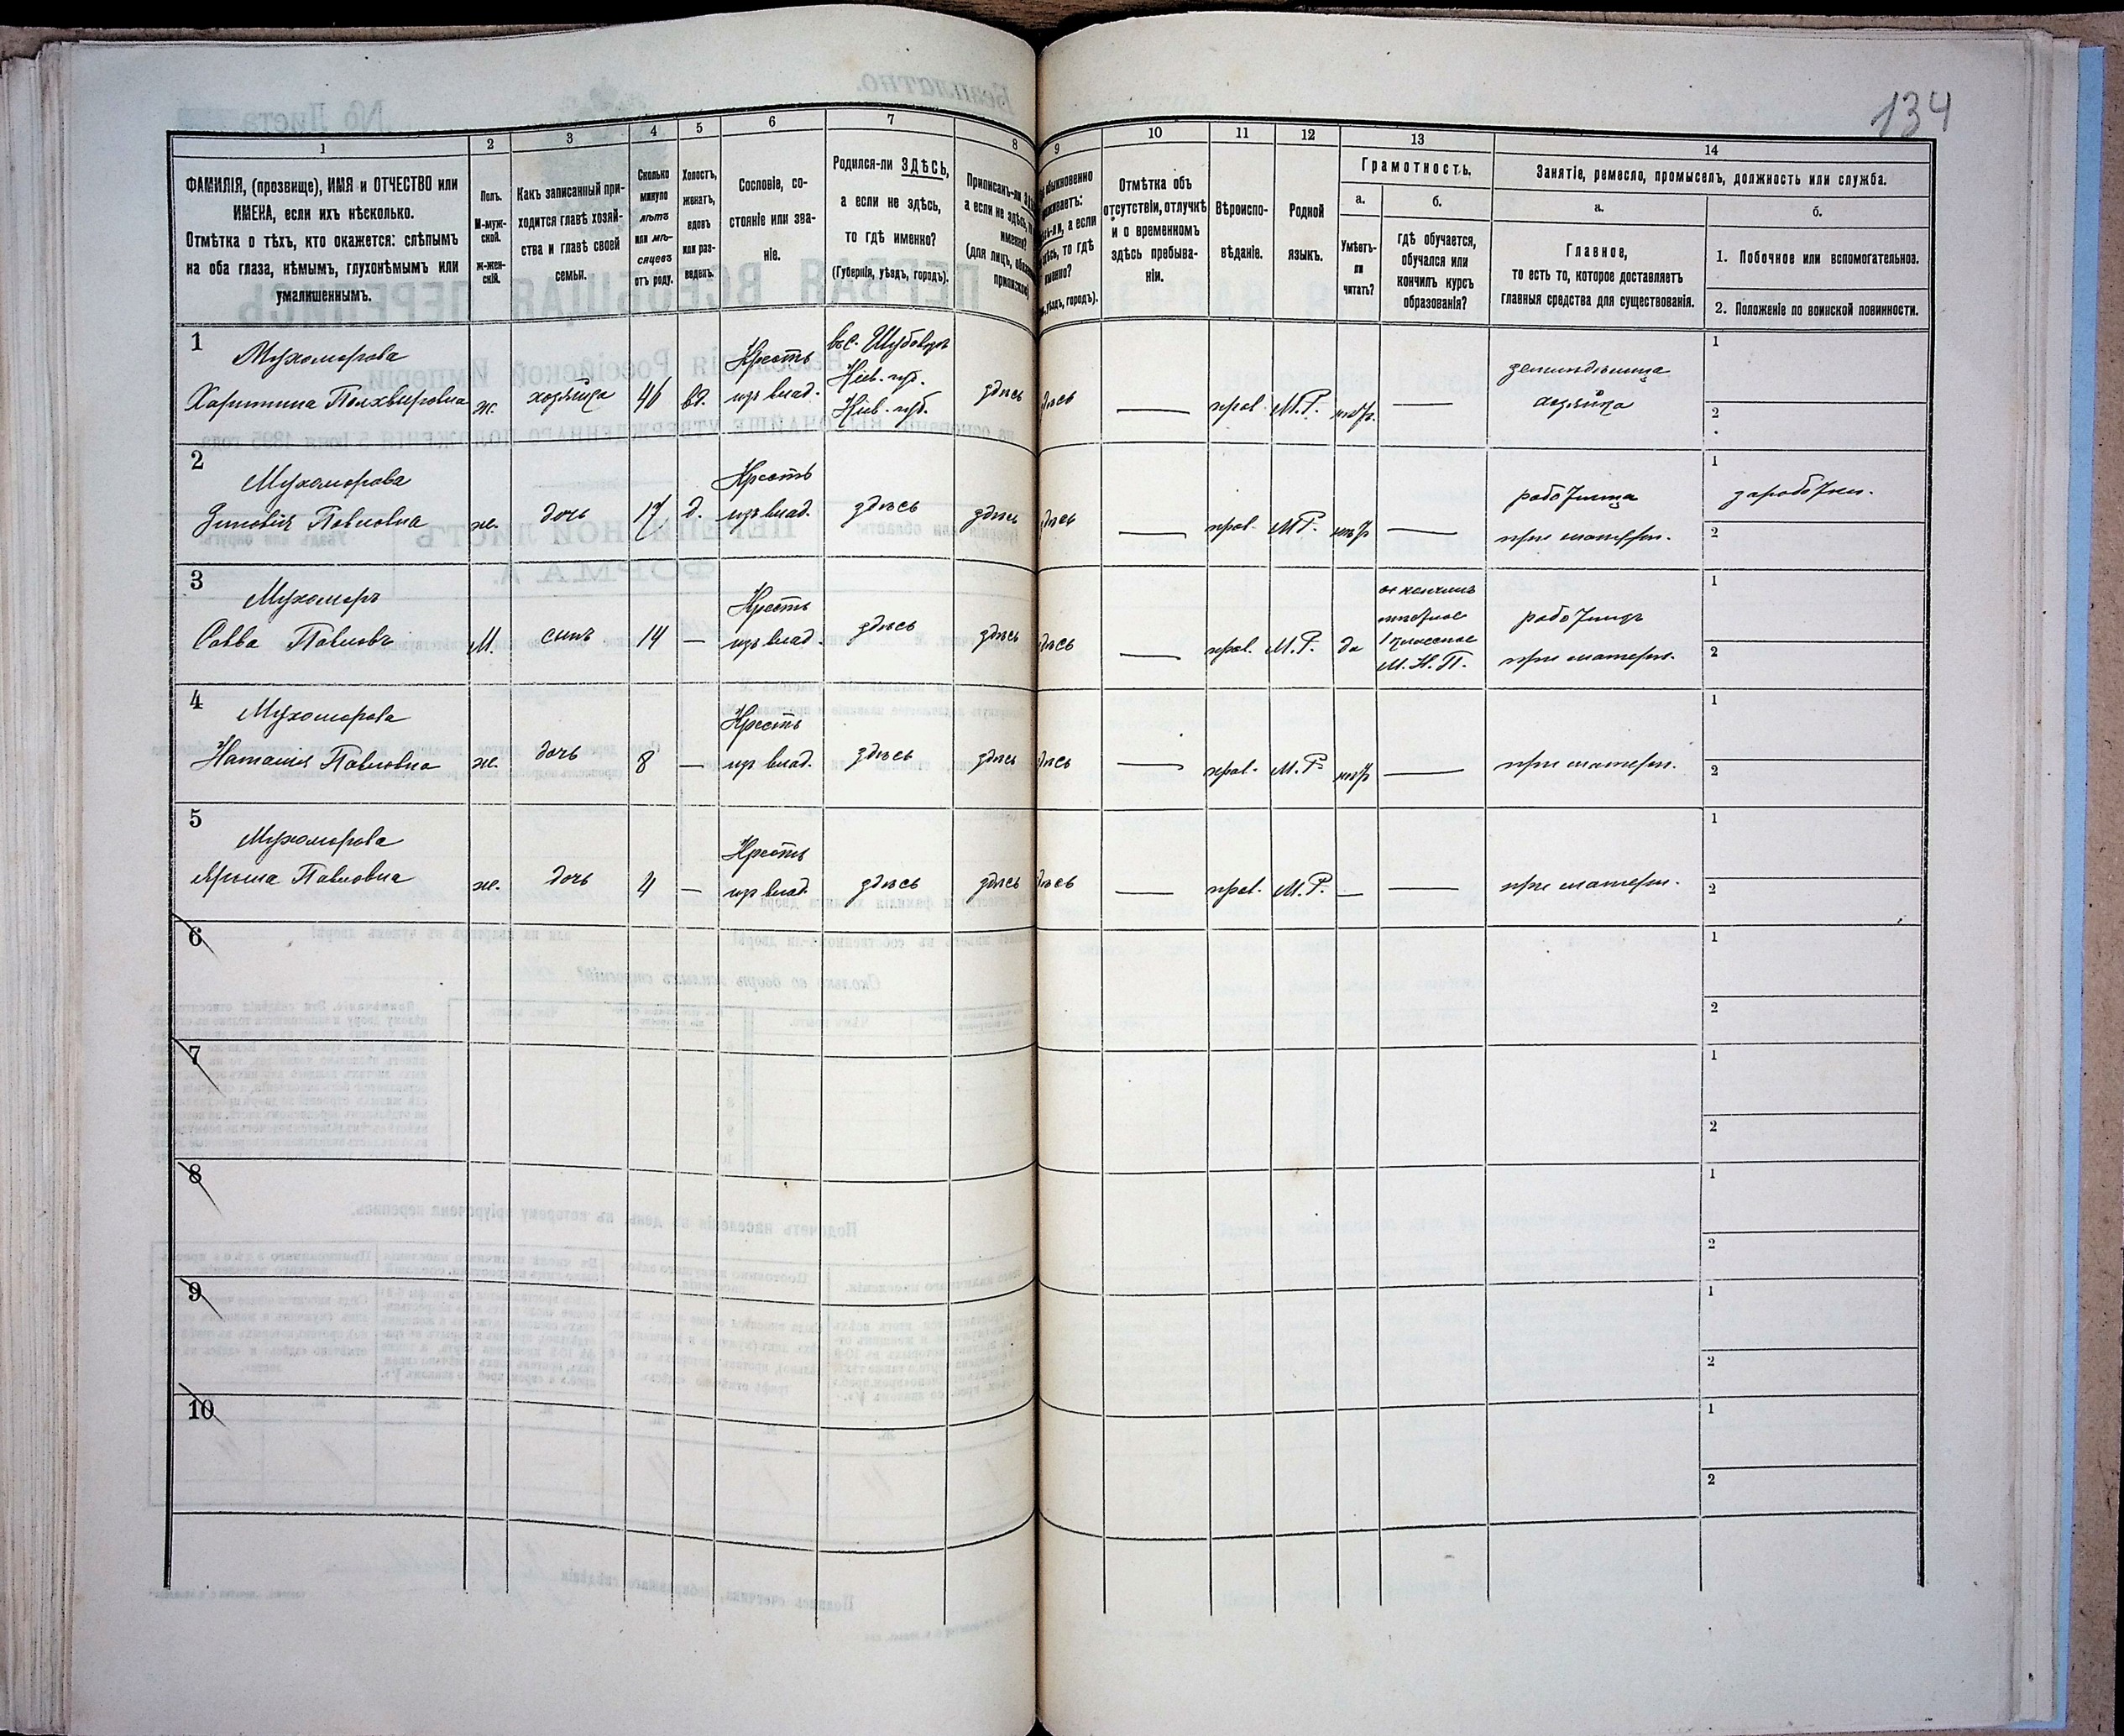 134
1
2
3
4
5
6
7
8
9
10
11
12
13
14
ФАМИЛІЯ, (прозвище), ИМЯ и ОТЧЕСТВО или
ИМЕНА, если ихъ нѣсколько.
Отмѣтка о тѣхъ, кто окажется: слѣпымъ
на оба глаза, нѣмымъ, глухонѣмымъ или
умалишеннымъ.
Полъ.
М-муж-
ской.
Ж-жен-
скій.
Какъ записанный при-
ходится главѣ хозяй-
ства и главѣ своей
семьи.
Сколько
минуло
лѣтъ
или мѣ-
сяцевъ
отъ роду.
Холостъ,
женатъ,
вдовъ
или раз-
веденъ.
Сословіе, со-
стояніе или зва-
ніе.
Родился-ли ЗДѢСЬ,
а если не здѣсь,
то гдѣ именно?
(Губернія, уѣздъ, городъ).
Приписанъ-ли
а если не здѣсь,
(для лицъ,
а если
то гдѣ
именно?
уѣздъ, городъ).
Отмѣтка объ
отсутствіи, отлучкѣ
и о временномъ
здѣсь пребыва-
ніи.
Вѣроиспо-
вѣданіе.
Родной
языкъ.
Грамотность.
а.
Умѣетъ-
ли
читать?
б.
гдѣ обучается,
обучался или
кончилъ курсъ
образованія?
Занятіе, ремесло, промыселъ, должность или служба.
а.
Главное,
то есть то, которое доставляетъ
главныя средства для существованія.
б.
1. Побочное или вспомогательное.
2. Положеніе по воинской повинности.
1
Мухоморова
Харитина
ж.
хозяйка
46
вд.
Крестъ
изъ влад.
Кіев. губ.
здѣсь
—
прав.
М.Р.
нѣтъ
—
хозяйка
1
2
2
Мухоморова
Зиновія Павловна
ж.
дочь
17
д.
Крестъ
изъ влад.
здѣсь
здѣсь
—
прав.
М.Р.
нѣтъ
—
работница
при матери.
1
заработки.
2
3
Мухоморъ
Савва Павловъ
М.
сынъ
14
—
Крестъ
изъ влад.
здѣсь
здѣсь
—
прав.
М.Р.
да
1 классное
М. Н. П.
работникъ
при матери.
1
2
4
Мухоморова
Наталія Павловна
ж.
дочь
8
—
Крестъ
изъ влад.
здѣсь
здѣсь
—
прав.
М.Р.
нѣтъ
—
при матери.
1
2
5
Мухоморова
Павловна
ж.
дочь
4
—
Крестъ
изъ влад.
здѣсь
здѣсь
—
прав.
М.Р.
—
—
при матери.
1
2
6
1
2
7
1
2
8
1
2
9
1
2
10
1
2